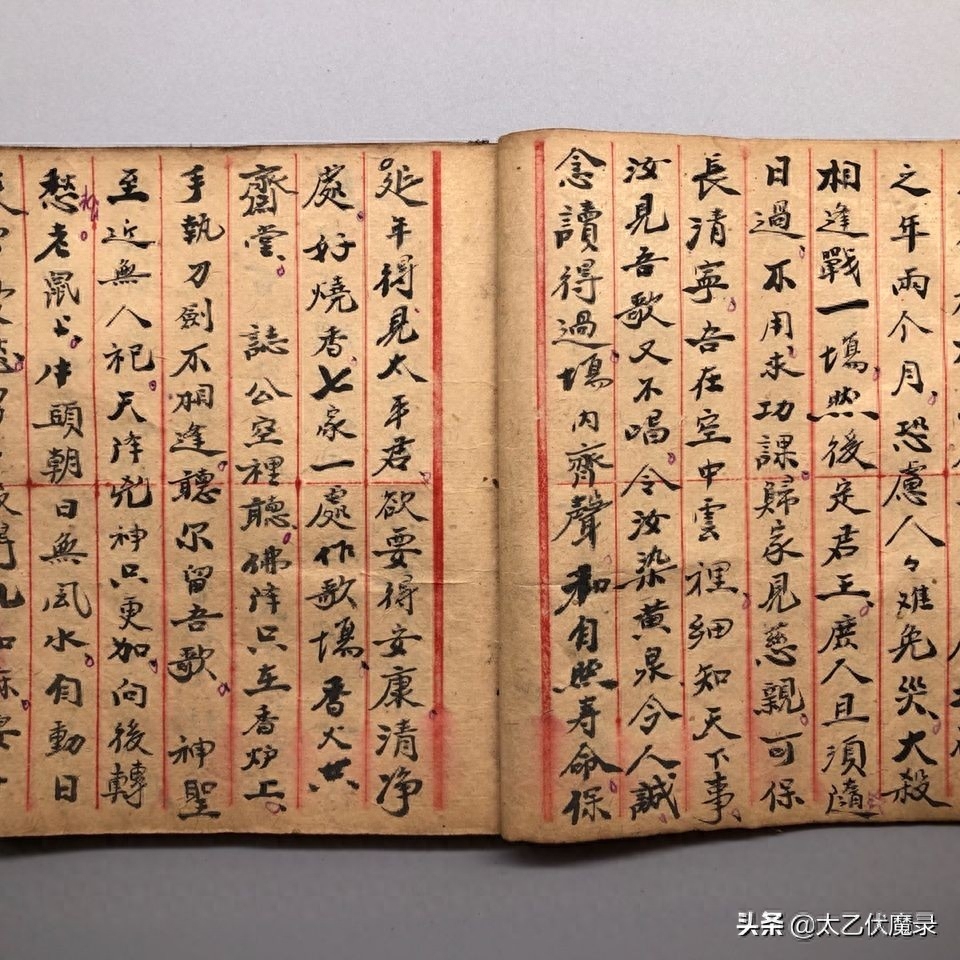 之年兩个月恐慮人々难免災大殺
相逢戰一塲然後定君王庶人且須隨
日過不用求功課歸家見慈親可保
長清寧吾在空中雲裡細知天下事
汝見吾歌又不唱令汝染黄泉今人誠
念讀得過塲内齊聲和自然寿命保
延年得見太平君欲要得安康清净
處好燒香七家一處作歌塲香火共
齋堂誌公空裡聽佛降只在香炉上
手執刀劍不相逢聽尔留吾歌神聖
至近無人祀天降兇神只更加向後轉
愁老鼠上牛頭朝日無風水自動日
头条 @太乙伏魔录